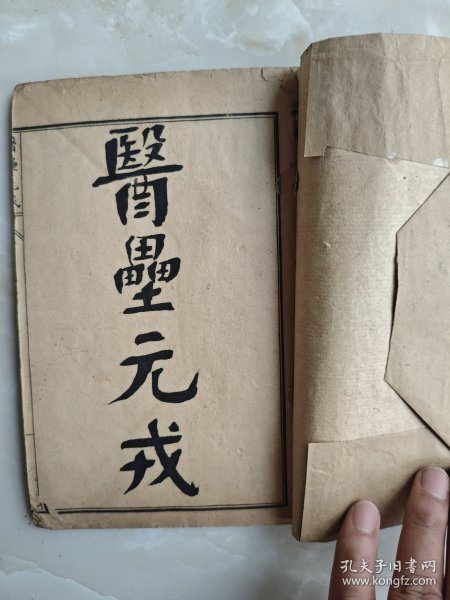 醫壘元戎
孔夫子旧书网
www.kongfz.com